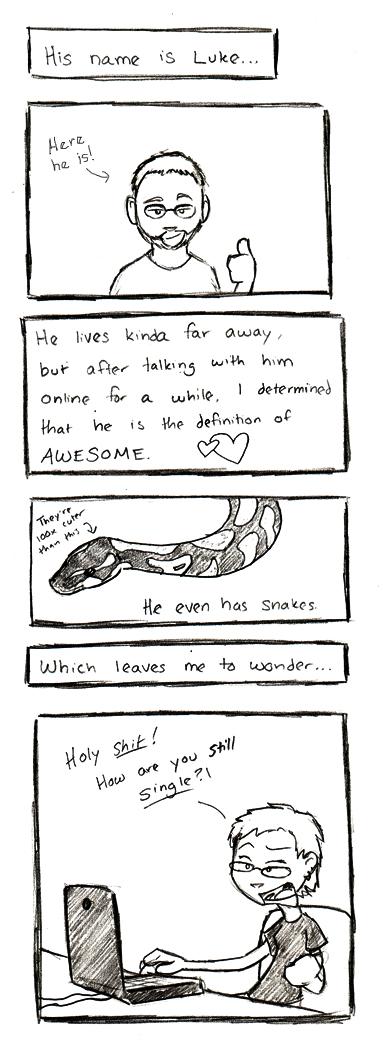 His name is Luke...
Here
he is!
He lives kinda far away,
but after talking with him
online for a while, I determined
that he is the definition of
AWESOME.
They're
100x cuter
than this
He even has snakes.
Which leaves me to wonder...
Holy shit!
How are you still
single?!